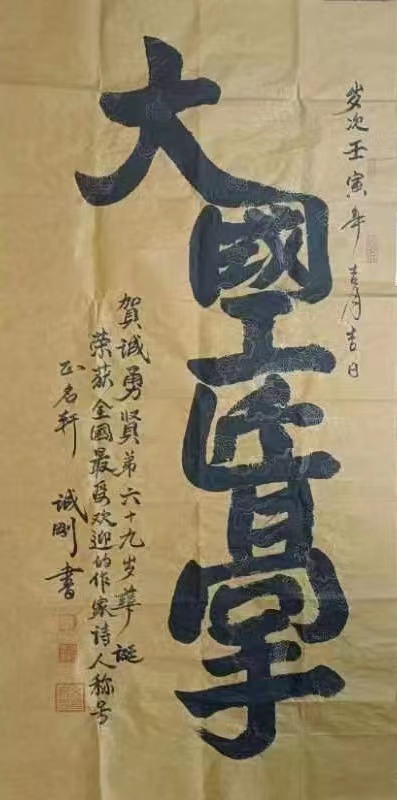 岁次壬寅年吉月吉日
大國工匠高手
賀诚勇賢弟六十九岁華诞
荣获全國最受欢迎的作家詩人称号
正名轩 诚刚書